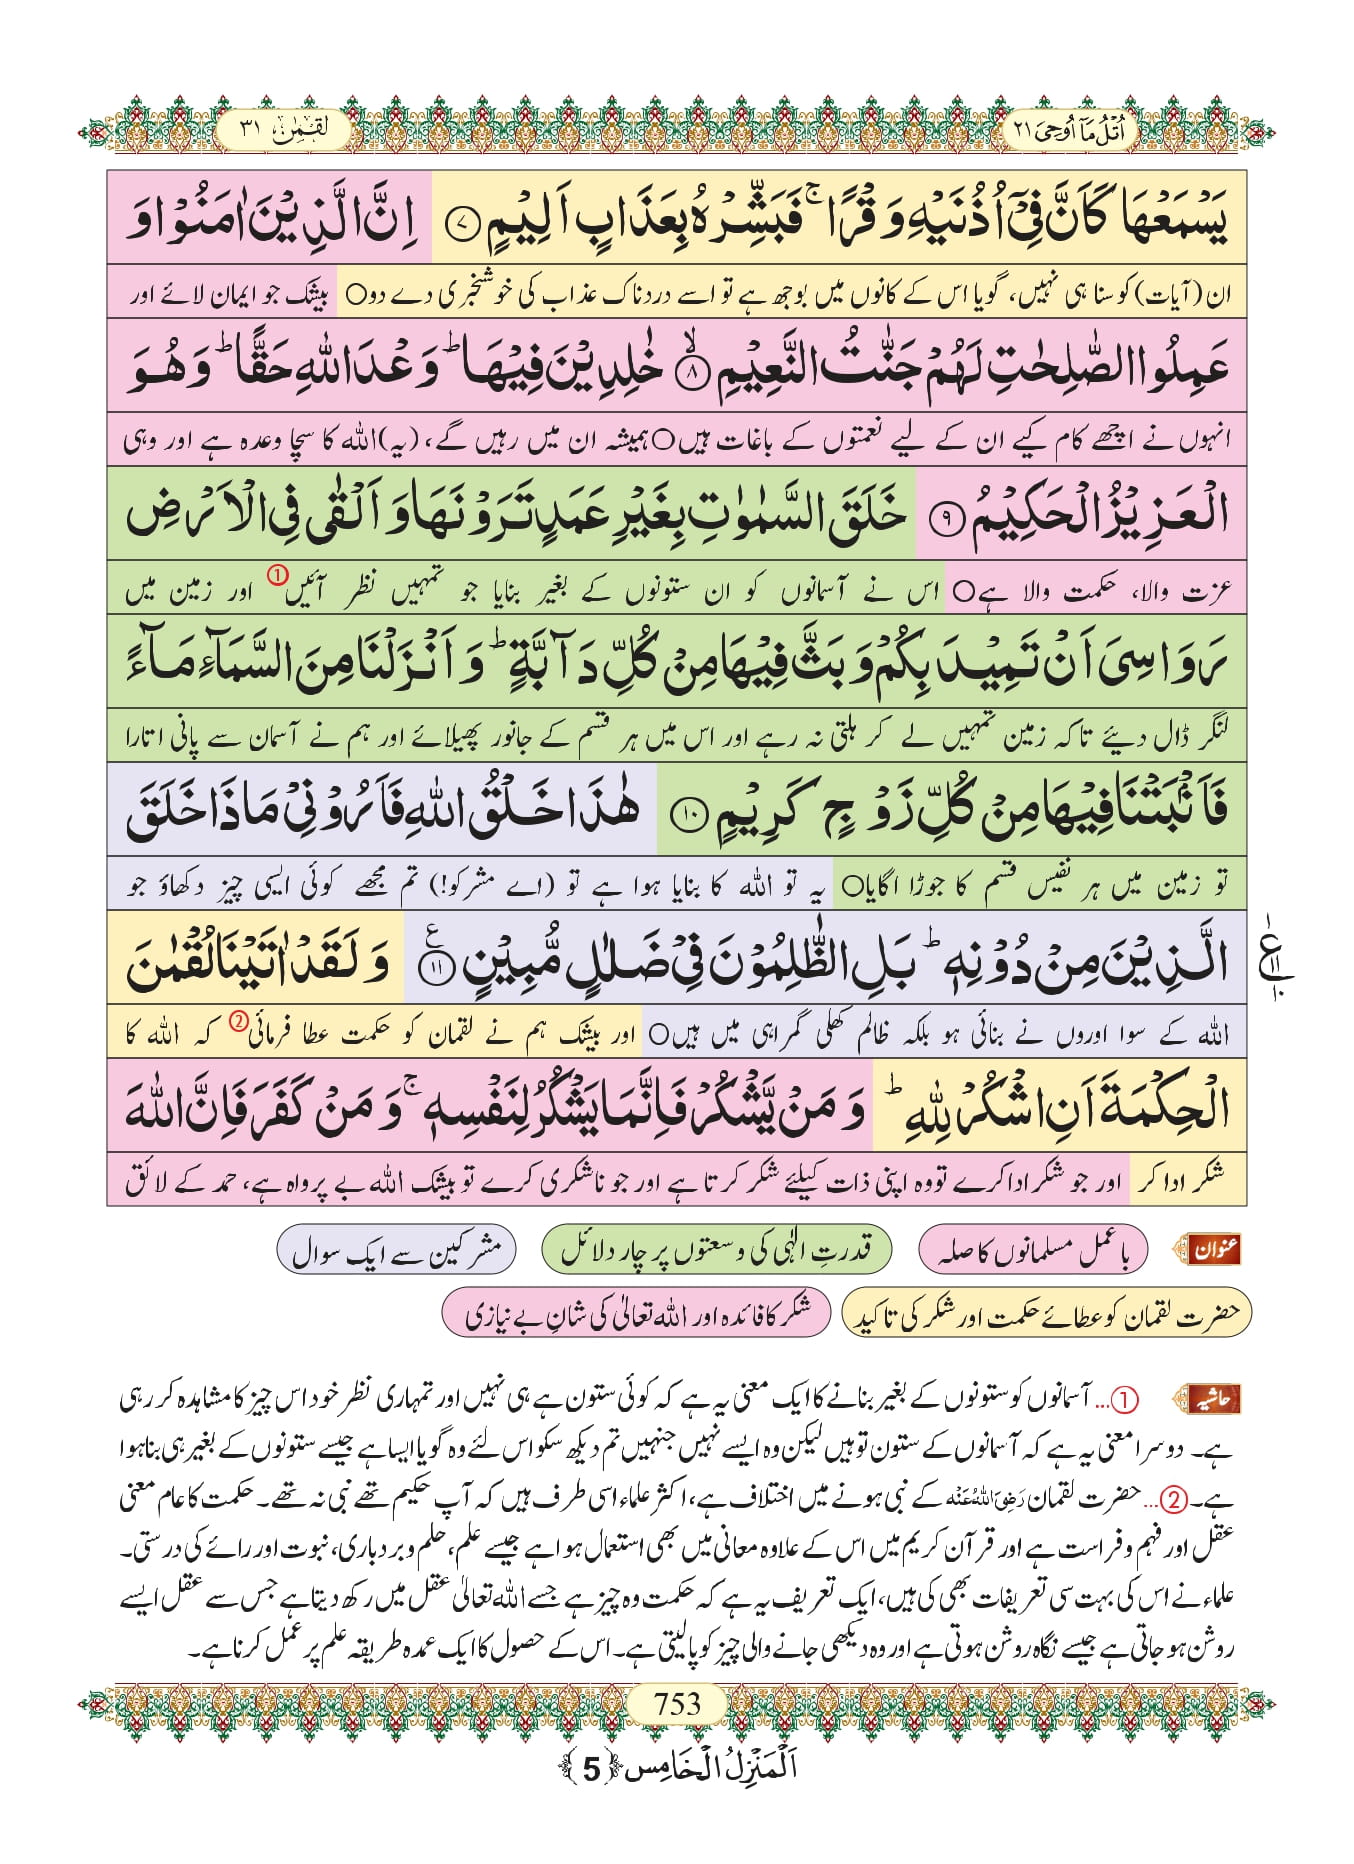 اُتْلُ مَاۤ اُوْحِیَ ۲۱
لقمٰن ۳۱
یَسْمَعْهَا كَاَنَّ فِیْۤ اُذُنَیْهِ وَقْرًاۚ فَبَشِّرْهُ بِعَذَابٍ اَلِیْمٍ ﴿۷﴾ اِنَّ الَّذِیْنَ اٰمَنُوْا وَ
ان (آیات) کو سنا ہی نہیں، گویا اس کے کانوں میں بوجھ ہے تو اسے دردناک عذاب کی خوشخبری دے دو○ بیشک جو ایمان لائے اور
عَمِلُوا الصّٰلِحٰتِ لَهُمْ جَنّٰتُ النَّعِیْمِ ﴿۸﴾ۙ خٰلِدِیْنَ فِیْهَاؕ وَعْدَ اللّٰهِ حَقًّاؕ وَ هُوَ
انہوں نے اچھے کام کیے ان کے لیے نعمتوں کے باغات ہیں○ ہمیشہ ان میں رہیں گے، (یہ) اللہ کا سچا وعدہ ہے اور وہی
الْعَزِیْزُ الْحَكِیْمُ ﴿۹﴾ خَلَقَ السَّمٰوٰتِ بِغَیْرِ عَمَدٍ تَرَوْنَهَا وَ اَلْقٰى فِی الْاَرْضِ
عزت والا، حکمت والا ہے○ اس نے آسمانوں کو ان ستونوں کے بغیر بنایا جو تمہیں نظر آئیں① اور زمین میں
رَوَاسِیَ اَنْ تَمِیْدَ بِكُمْ وَ بَثَّ فِیْهَا مِنْ كُلِّ دَآبَّةٍؕ وَ اَنْزَلْنَا مِنَ السَّمَآءِ مَآءً
لنگر ڈال دیئے تاکہ زمین تمہیں لے کر ہلتی نہ رہے اور اس میں ہر قسم کے جانور پھیلائے اور ہم نے آسمان سے پانی اتارا
فَاَنْۢبَتْنَا فِیْهَا مِنْ كُلِّ زَوْجٍ كَرِیْمٍ ﴿۱۰﴾ هٰذَا خَلْقُ اللّٰهِ فَاَرُوْنِیْ مَا ذَا خَلَقَ
تو زمین میں ہر نفیس قسم کا جوڑا اگایا○ یہ تو اللہ کا بنایا ہوا ہے تو (اے مشرکو!) تم مجھے کوئی ایسی چیز دکھاؤ جو
الَّذِیْنَ مِنْ دُوْنِهٖؕ بَلِ الظّٰلِمُوْنَ فِیْ ضَلٰلٍ مُّبِیْنٍ ﴿۱۱﴾ع وَ لَقَدْ اٰتَیْنَا لُقْمٰنَ
۱ ع ۱۱ ۱۰
اللہ کے سوا اوروں نے بنائی ہو بلکہ ظالم کھلی گمراہی میں ہیں○ اور بیشک ہم نے لقمان کو حکمت عطا فرمائی② کہ اللہ کا
الْحِكْمَةَ اَنِ اشْكُرْ لِلّٰهِؕ وَ مَنْ یَّشْكُرْ فَاِنَّمَا یَشْكُرُ لِنَفْسِهٖۚ وَ مَنْ كَفَرَ فَاِنَّ اللّٰهَ
شکر ادا کر اور جو شکر ادا کرے تو وہ اپنی ذات کیلئے شکر کرتا ہے اور جو ناشکری کرے تو بیشک اللہ بے پرواہ ہے، حمد کے لائق
عنوان باعمل مسلمانوں کا صلہ قدرتِ الٰہی کی وسعتوں پر چار دلائل مشرکین سے ایک سوال
حضرت لقمان کو عطائے حکمت اور شکر کی تاکید شکر کا فائدہ اور اللہ تعالیٰ کی شانِ بے نیازی
حاشیہ ①... آسمانوں کو ستونوں کے بغیر بنانے کا ایک معنی یہ ہے کہ کوئی ستون ہے ہی نہیں اور تمہاری نظر خود اس چیز کا مشاہدہ کر رہی
ہے۔ دوسرا معنی یہ ہے کہ آسمانوں کے ستون تو ہیں لیکن وہ ایسے نہیں جنہیں تم دیکھ سکو اس لئے وہ گویا ایسا ہے جیسے ستونوں کے بغیر ہی بنا ہوا
ہے۔ ②... حضرت لقمان رَضِیَ اللہُ عَنْہُ کے نبی ہونے میں اختلاف ہے، اکثر علماء اسی طرف ہیں کہ آپ حکیم تھے نبی نہ تھے۔ حکمت کا عام معنی
عقل اور فہم و فراست ہے اور قرآن کریم میں اس کے علاوہ معانی میں بھی استعمال ہوا ہے جیسے علم، حلم و بردباری، نبوت اور رائے کی درستی۔
علماء نے اس کی بہت سی تعریفات بھی کی ہیں، ایک تعریف یہ ہے کہ حکمت وہ چیز ہے جسے اللہ تعالیٰ عقل میں رکھ دیتا ہے جس سے عقل ایسے
روشن ہو جاتی ہے جیسے نگاہ روشن ہوتی ہے اور وہ دیکھی جانے والی چیز کو پا لیتی ہے۔ اس کے حصول کا ایک عمدہ طریقہ علم پر عمل کرنا ہے۔
753
اَلْمَنْزِلُ الْخَامِس ﴿5﴾